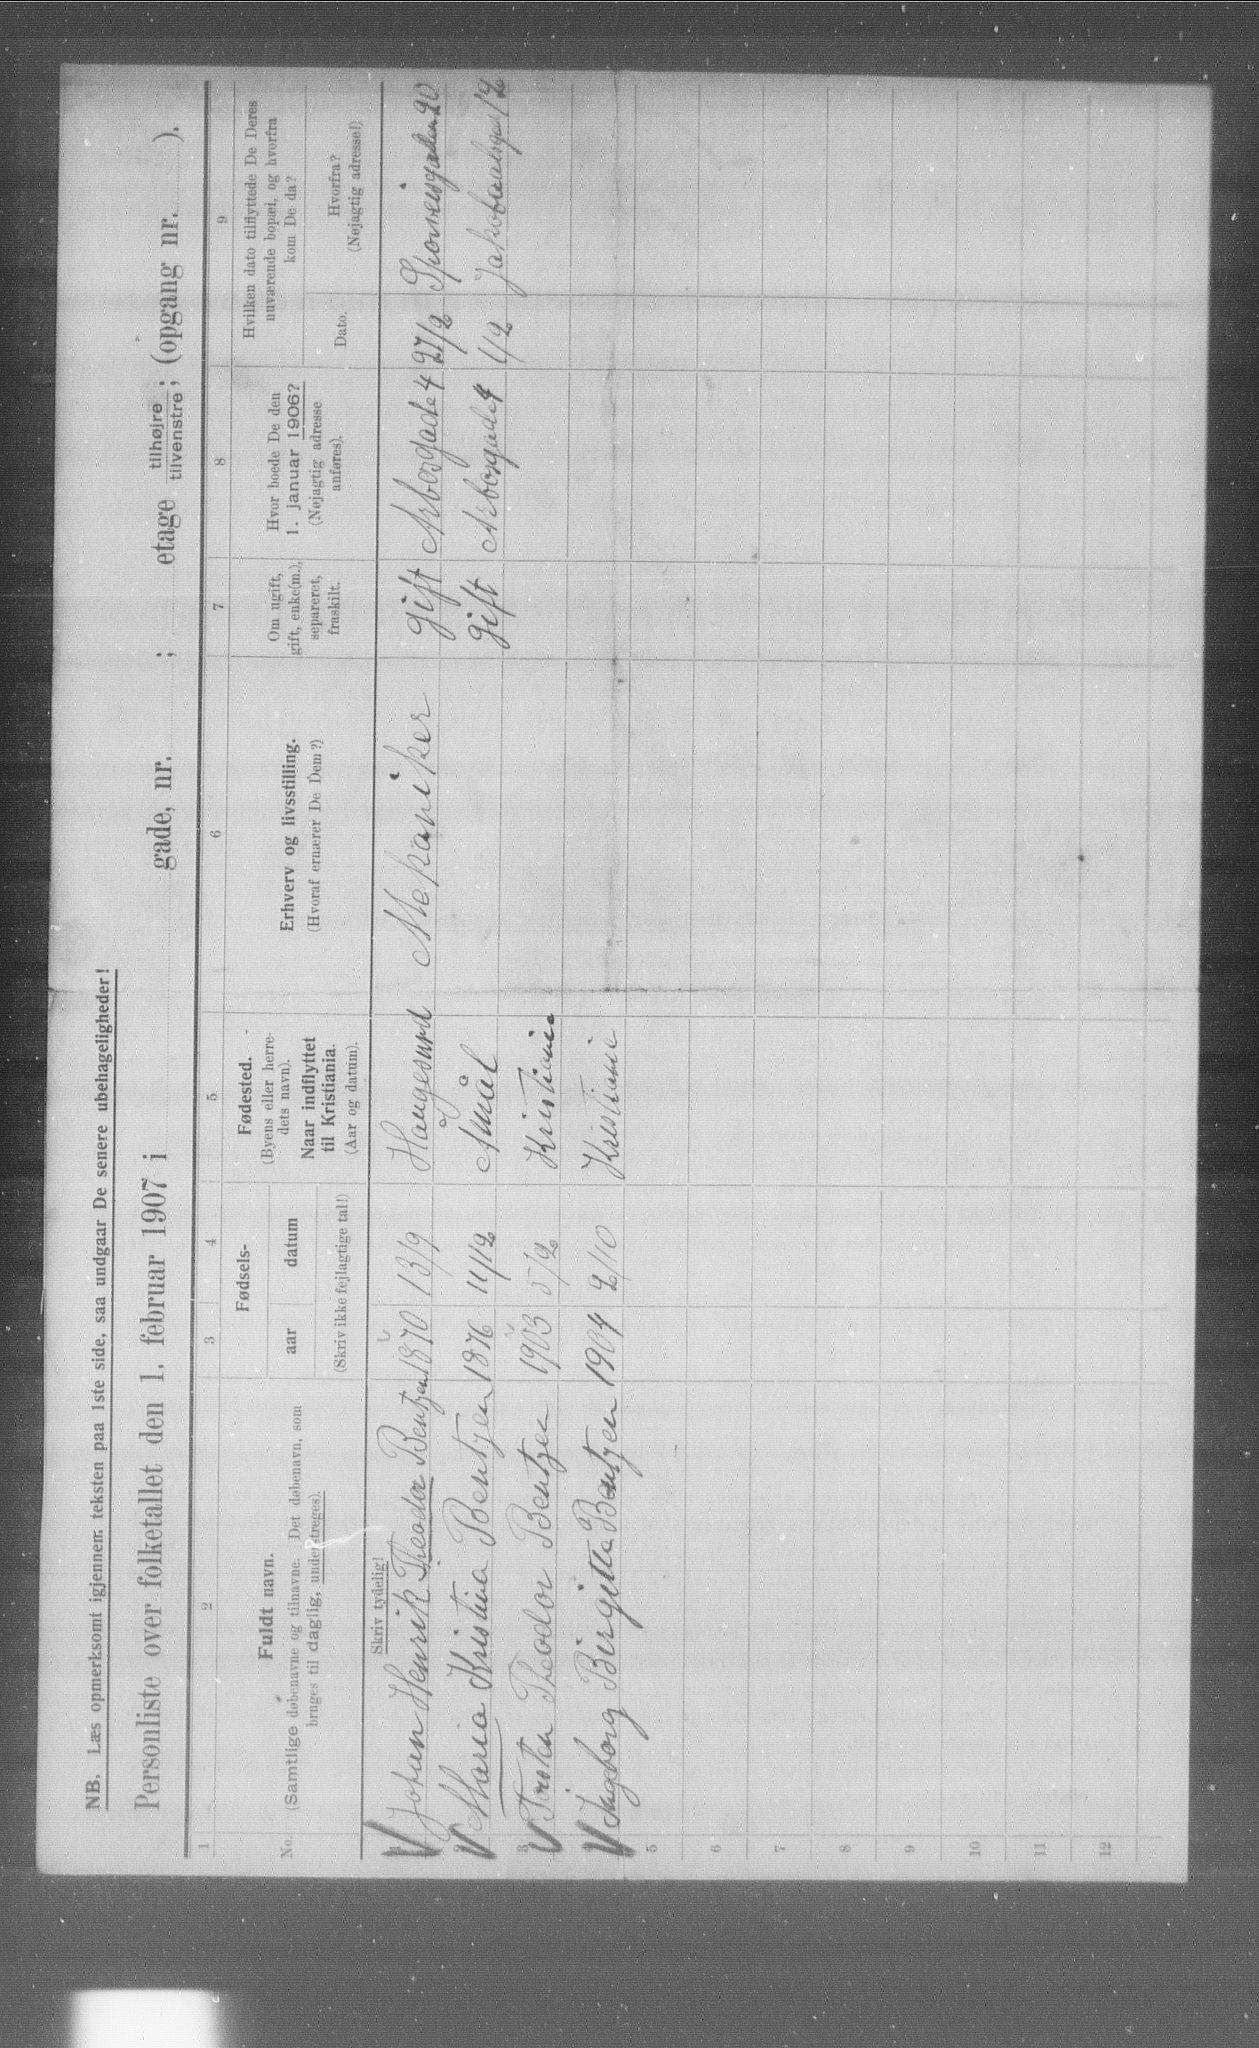 NB. Læs opmerksomt igjennem teksten paa 1ste side, saa undgaar De senere ubehageligheder!
Personliste over folketallet den 1. februar 1907 i gade, nr. ; etage tilhøjre tilvenstre; (opgang nr. ).
1 2 3 4 5 6 7 8 9
No.
Fuldt navn.
(Samtlige døbenavne og tilnavne. Det døbenavn, som
bruges til daglig, understreges).
Fødsels-
aar datum
(Skriv ikke fejlagtige tal!)
Fødested.
(Byens eller herre-
dets navn).
Naar indflyttet
til Kristiania.
(Aar og datum).
Erhverv og livsstilling.
(Hvoraf ernærer De Dem?)
Om ugift,
gift, enke(m.),
separeret,
fraskilt.
Hvor boede De den
1. januar 1906?
(Nøjagtig adresse
anføres).
Hvilken dato tilflyttede De Deres
nuværende bopæl, og hvorfra
kom De da?
Dato.
Hvorfra?
(Nøjagtig adresse!)
Skriv tydelig!
1 Johan Henrik Theodor Bentzen 1870 13/9 Haugesund Mekaniker gift Arbosgade 4 27/2 20
2 Maria Kristina Bentzen 1876 11/2 Åmål gift Arbosgade 4 1/2 Jakobaalsgad 12
3 Torsten Theodor Bentzen 1903 5/2 Kristiania
4 Ingeborg Birgitta Bentzen 1904 2/10 Kristiania
5
6
7
8
9
10
11
12